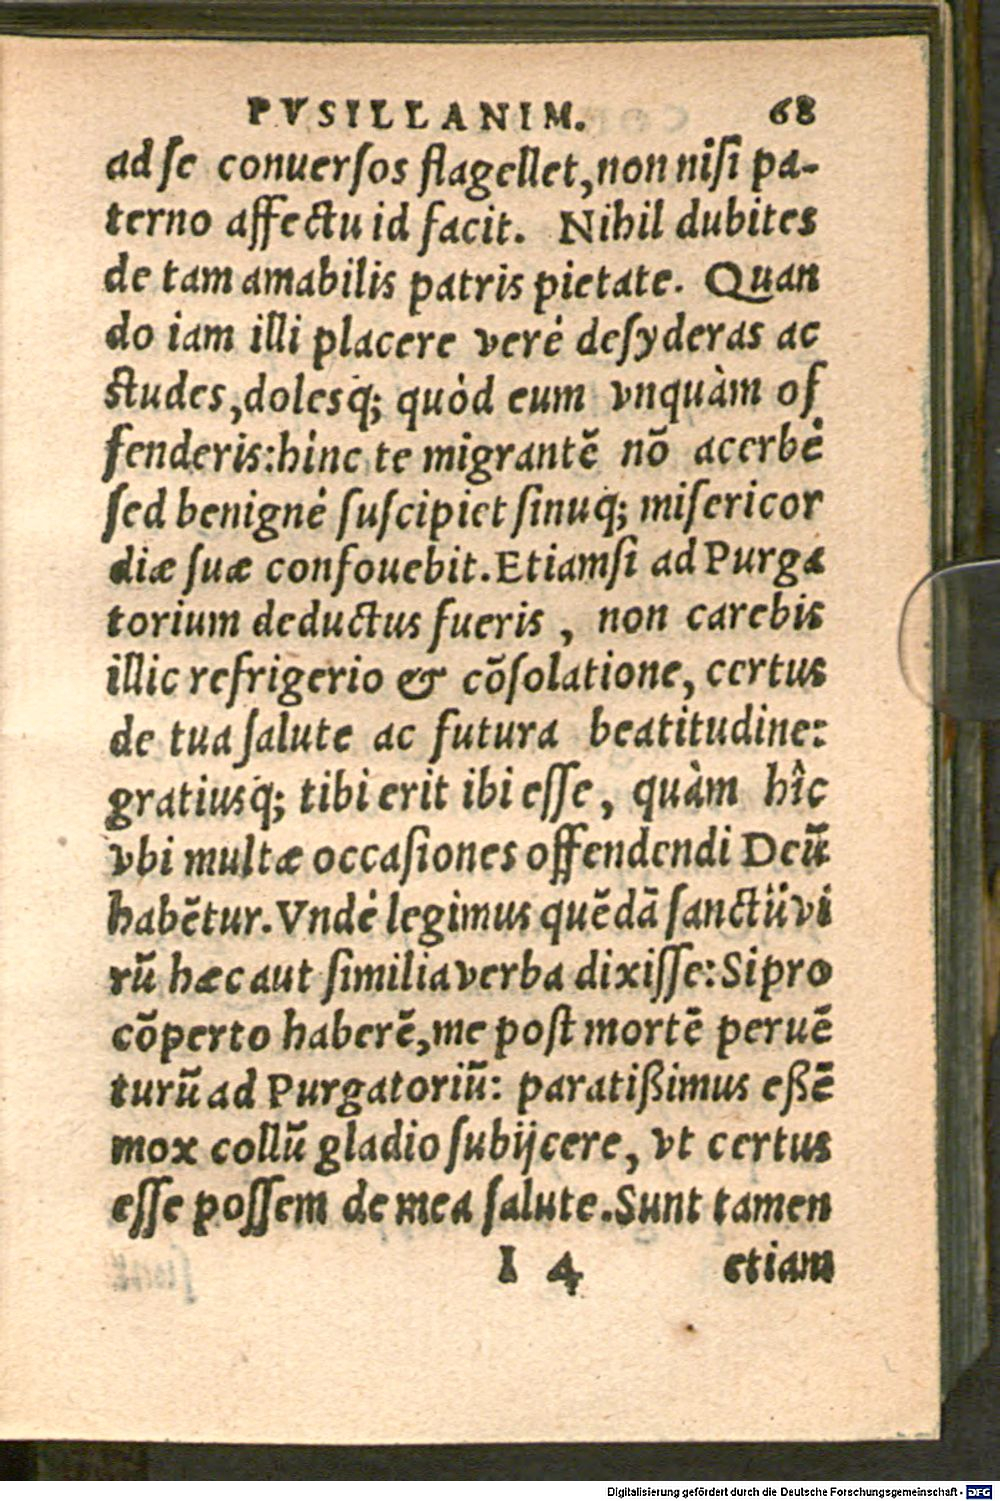 PVSILLANIM. 68
ad se conuersos flagellet, non nisi pa-
terno affectu id facit. Nihil dubites
de tam amabilis patris pietate. Quan
do iam illi placere verè desyderas ac
studes, dolesq́; quòd eum vnquàm of
fenderis: hinc te migrantē nō acerbè
sed benignè suscipiet sinuq́; misericor
diæ suæ confouebit. Etiamsi ad Purga
torium deductus fueris, non carebis
illic refrigerio & cōsolatione, certus
de tua salute ac futura beatitudine:
gratiusq́; tibi erit ibi esse, quàm hîc
vbi multæ occasiones offendendi Deū
habētur. Vndè legimus quēdā sanctū vi
rū hæc aut similia verba dixisse: Si pro
cōperto haberē, me post mortē peruē
turū ad Purgatoriū: paratißimus eßē
mox collū gladio subijcere, vt certus
esse possem de mea salute. Sunt tamen
I 4 etiam
Digitalisierung gefördert durch die Deutsche Forschungsgemeinschaft - DFG